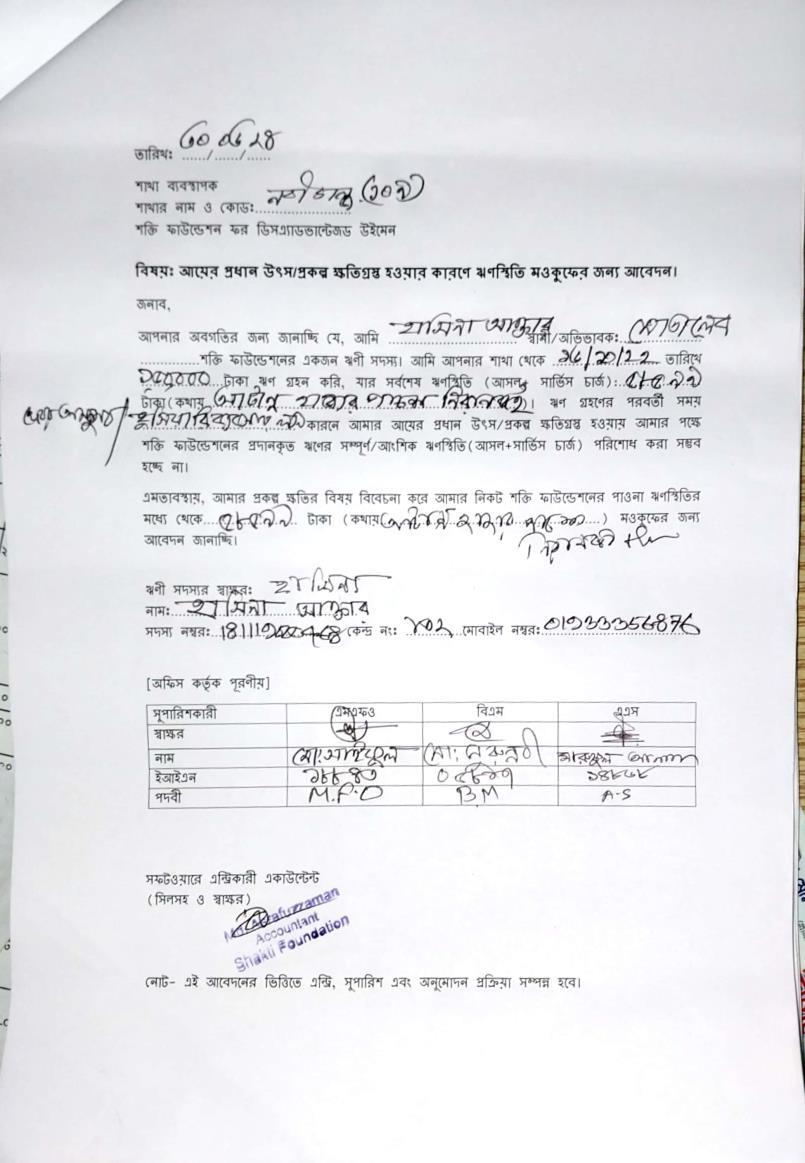 তারিখঃ ৩০ ০৬ ২৪
শাখা ব্যবস্থাপক
শাখার নাম ও কোডঃ
শক্তি ফাউন্ডেশন ফর ডিসএ্যাডভান্টেজড উইমেন
বিষয়ঃ আয়ের প্রধান উৎস/প্রকল্প ক্ষতিগ্রস্থ হওয়ার কারণে ঋণস্থিতি মওকুফের জন্য আবেদন।
জনাব,
আপনার অবগতির জন্য জানাচ্ছি যে, আমি হাসিনা আক্তার স্বামী/অভিভাবকঃ মোতালেব
শক্তি ফাউন্ডেশনের একজন ঋণী সদস্য। আমি আপনার শাখা থেকে তারিখে
টাকা ঋণ গ্রহন করি, যার সর্বশেষ ঋণস্থিতি (আসল+ সার্ভিস চার্জ):
টাকা (কথায় হাজার পাঁচশত নিরানব্বই)। ঋণ গ্রহণের পরবর্তী সময়
কারনে আমার আয়ের প্রধান উৎস/প্রকল্প ক্ষতিগ্রস্থ হওয়ায় আমার পক্ষে
শক্তি ফাউন্ডেশনের প্রদানকৃত ঋণের সম্পূর্ণ/আংশিক ঋণস্থিতি(আসল+সার্ভিস চার্জ) পরিশোধ করা সম্ভব
হচ্ছে না।
এমতাবস্থায়, আমার প্রকল্প ক্ষতির বিষয় বিবেচনা করে আমার নিকট শক্তি ফাউন্ডেশনের পাওনা ঋণস্থিতির
মধ্যে থেকে টাকা (কথায় হাজার) মওকুফের জন্য
আবেদন জানাচ্ছি।
ঋণী সদস্যর স্বাক্ষরঃ হাসিনা
নামঃ হাসিনা আক্তার
সদস্য নম্বরঃ কেন্দ্র নং: ১০২ মোবাইল নম্বরঃ 01933356876
[অফিস কর্তৃক পূরণীয়]
সুপারিশকারী এমএফও বিএম এএস
স্বাক্ষর
নাম মো: সাইফুল মো: নুরুন্নবী
ইআইএন
পদবী M.F.O B.M A-S
সফটওয়ারে এন্ট্রিকারী একাউন্টেন্ট
(সিলসহ ও স্বাক্ষর)
Accountant
Shakti Foundation
নোট- এই আবেদনের ভিত্তিতে এন্ট্রি, সুপারিশ এবং অনুমোদন প্রক্রিয়া সম্পন্ন হবে।